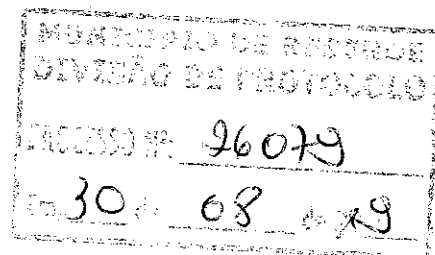 MUNICÍPIO DE RESENDE
DIVISÃO DE PROTOCOLO
PROCESSO Nº 26079
Em 30 de 08 de 19